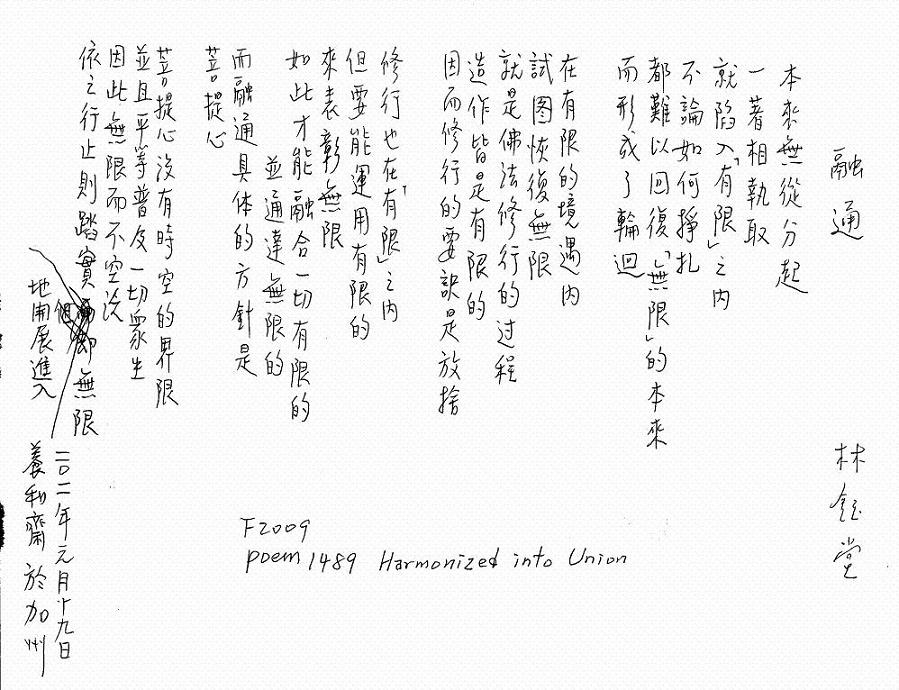 融通
林鈺堂
本來無從分起
一著相執取
就陷入「有限」之內
不論如何掙扎
都難以回復「無限」的本來
而形成了輪迴
在有限的境遇內
試图恢復無限
就是佛法修行的过程
造作皆是有限的
因而修行的要訣是放捨
修行也在「有限」之內
但要能運用有限的
來表彰無限
如此才能融合一切有限的
並通達無限的
而融通具体的方針是
菩提心
菩提心沒有時空的界限
並且平等普及一切眾生
因此無限而不空洗
依之行止則踏實地開展進入無限
二〇一二年元月十九日
養和齋 於加州
F2009
poem 1489 Harmonized into Union